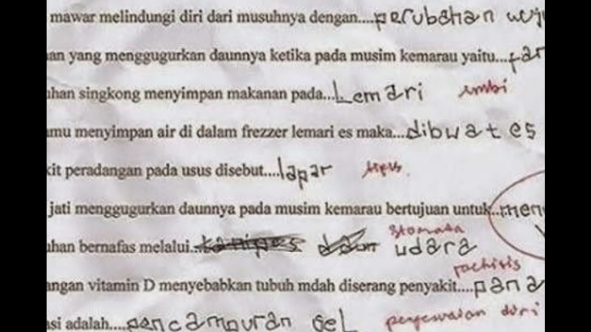 mawar melindungi diri dari musuhnya dengan....perubahan wuj
an yang menggugurkan daunnya ketika pada musim kemarau yaitu...
han singkong menyimpan makanan pada...Lemari umbi
mu menyimpan air di dalam frezzer lemari es maka...dibuat es
kit peradangan pada usus disebut....lapar tipus.
jati menggugurkan daunnya pada musim kemarau bertujuan untuk...men
stomata
han bernafas melalui... daun udara
rachitis
angan vitamin D menyebabkan tubuh mdah diserang penyakit....pana
si adalah....pencampuran sel penyesuaian diri